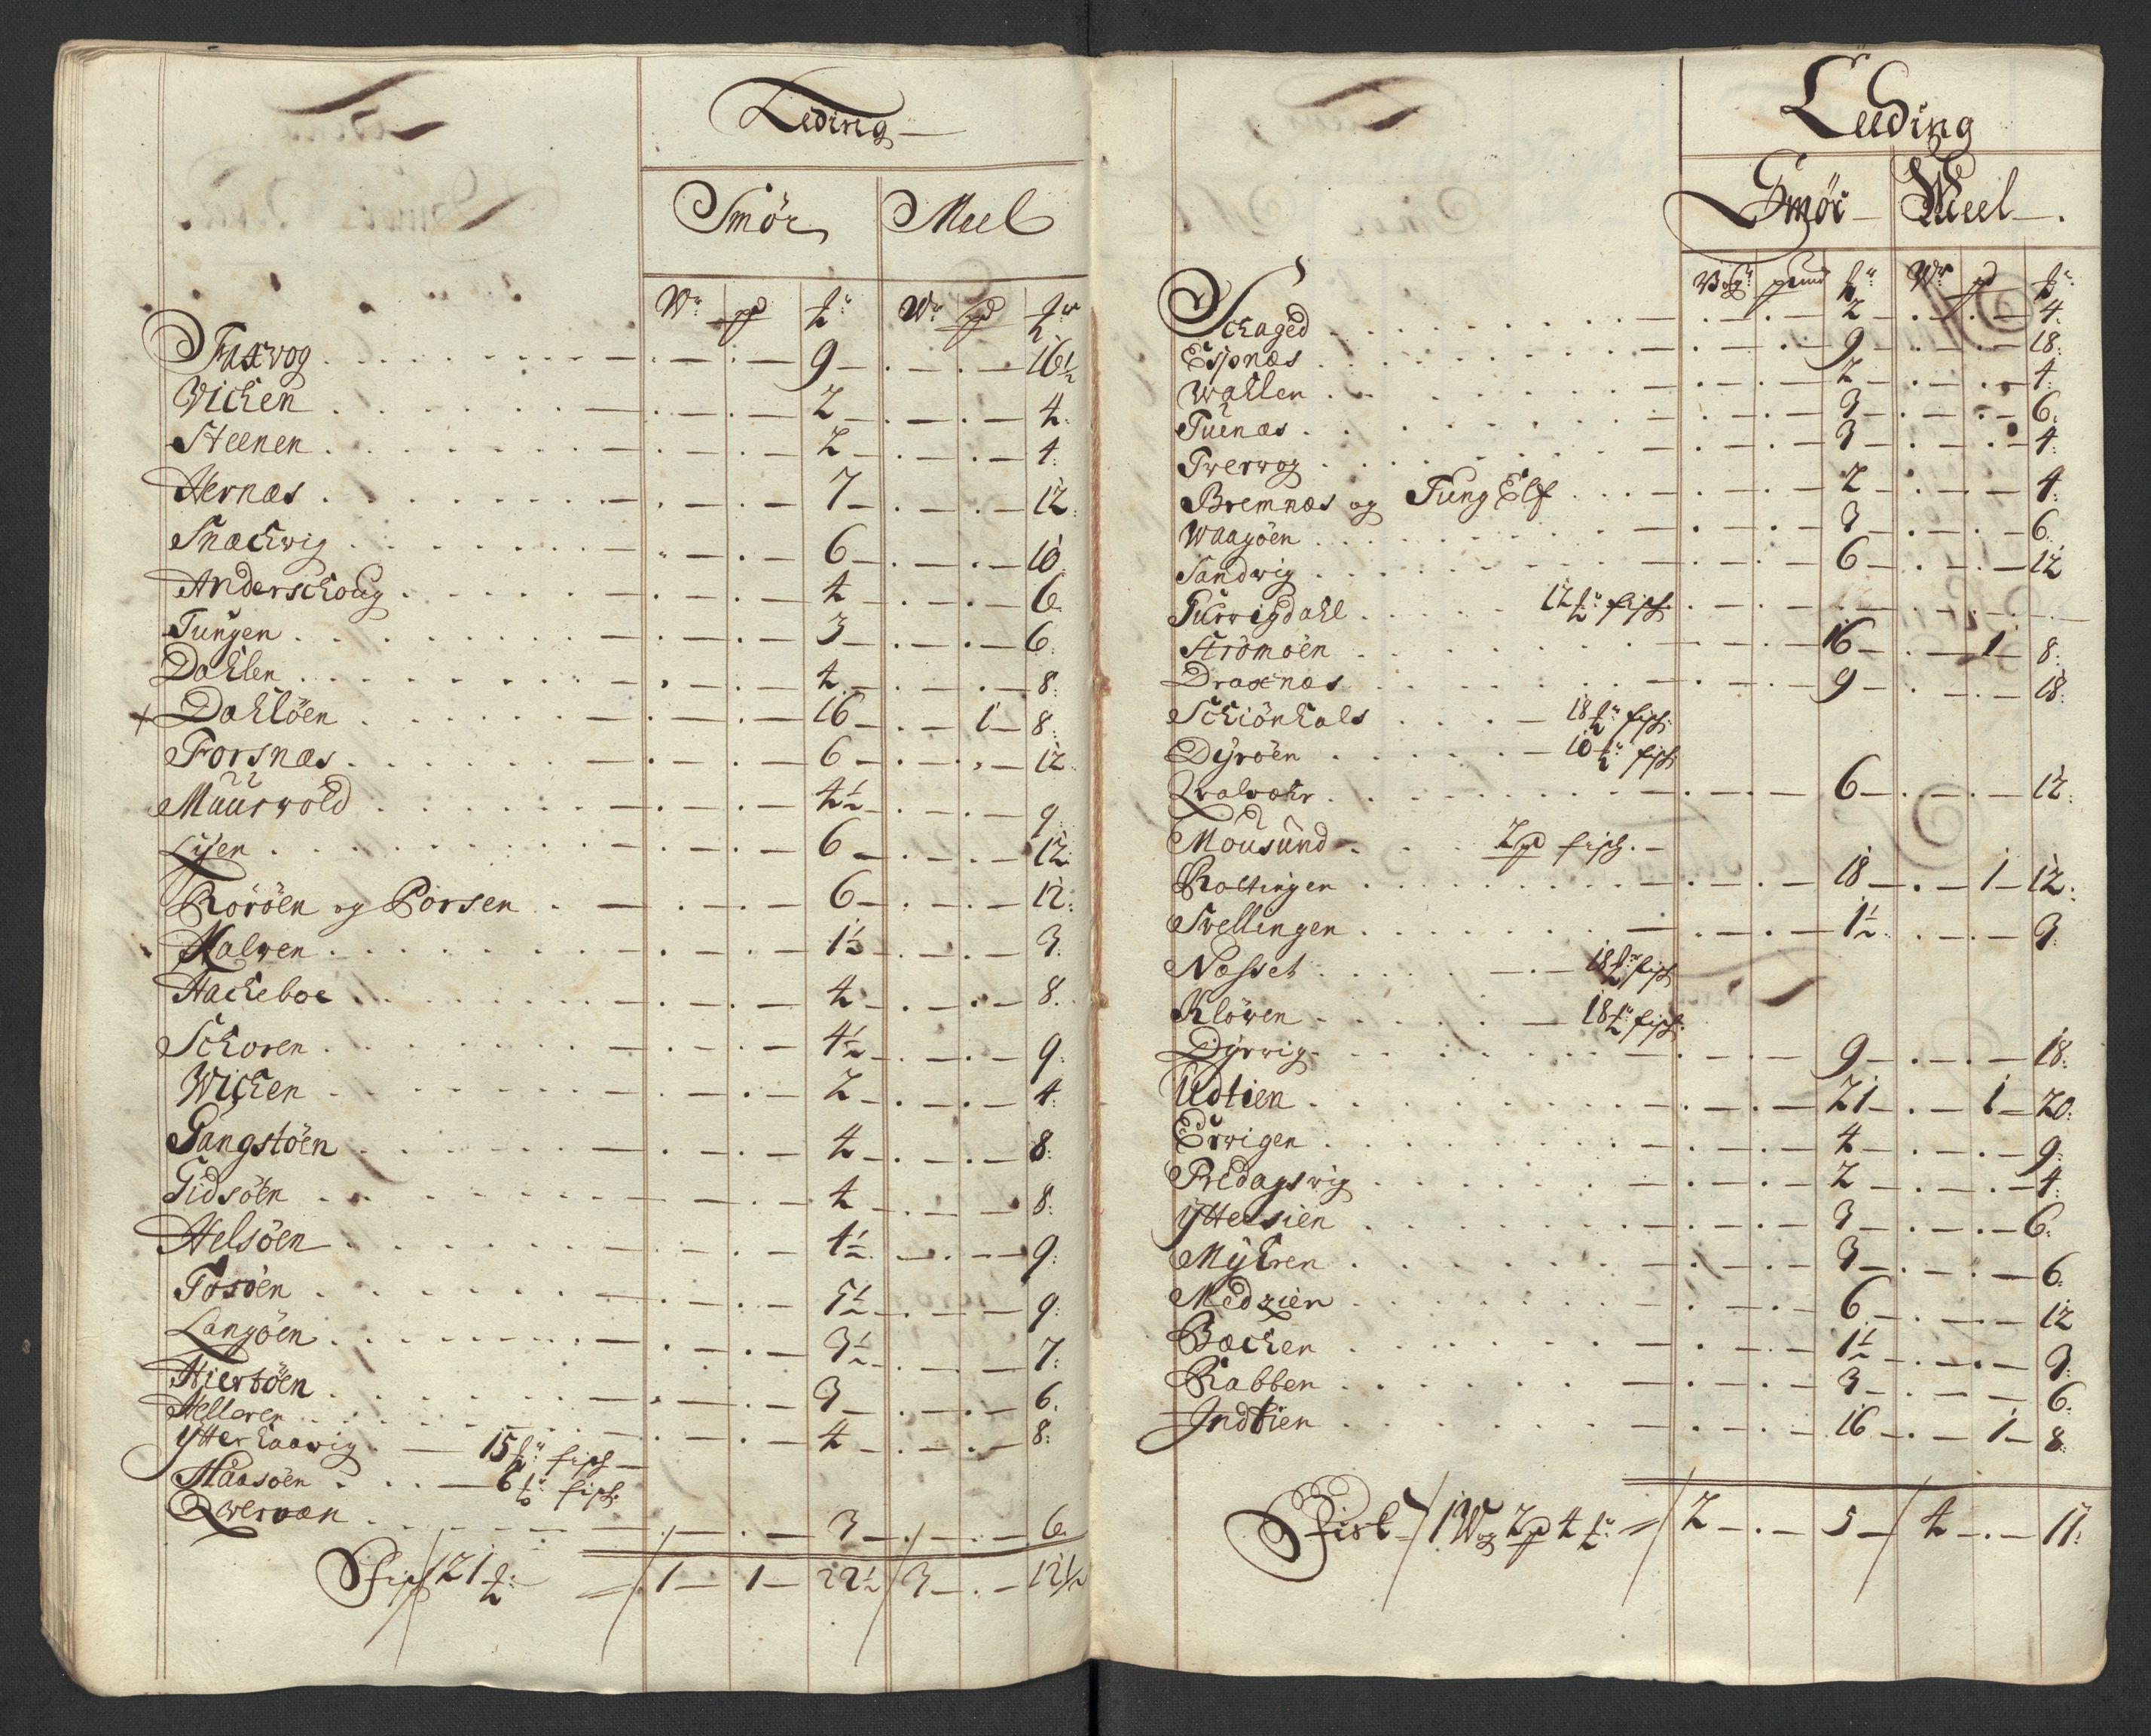 Leding
Smör Meel
Wr pd ℔r Wr pd ℔r
Faxvog 9 16½
Vichen 2 4
Steenen 2 4
Hernæs 7 12
Snæchvig 6 10
Anderschoug 4 6
Tungen 3 6
Dahlen 4 8
Dahlöen 16 1 8
Forsnæs 6 12
Muurvold 4½ 9
Lyen 6 12
Röröen og Porsen 6 12
Kalven 1½ 3
Hacheboe 4 8
Schoren 4½ 9
Wichen 2 4
Gangstöen 4 8
Gidsöen 4 8
Helsöen 4½ 9
Tosöen 5½ 9
Langöen 3½ 7
Hiertöen 3 6
Helleren 4 8
Ytterhaavig 15 ℔r fisch
Maasöen 6 ℔r fisch
Qvernæn 3 6
Fisch 21 ℔r 1 1 22½ 3 12½
Leeding
Smör Meel
Wogr pund ℔r Wr pd ℔r
Schaged 2 4
Espnæs 9 18
Wahlen 2 4
Tuenæs 3 6
Tvervog 3 4
Bremnæs og Tung Elf 2 4
Waagöen 3 6
Sandvig 6 12
Gurvigdahl 12 ℔r fisch
Strömöen 16 1 8
Draxnæs 9 18
Schiönhals 18 ℔r fisch
Dyröen 10 ℔r fisch
Qvalvær 6 12
Mousund 2 pd fisch
Roltingen 18 1 12
Svellingen 1½ 3
Næsset 18 ℔r fisch
Klöven 18 ℔r fisch
Dyrvig 9 18
Udtien 21 1 20
Ervigen 4 9
Predagsvig 2 4
Yttersien 3 6
Myhren 3 6
Medzien 6 12
Bæchen 1½ 3
Rabben 3 6
Indtien 16 1 8
Fisk 1 Wog 2 pd 4 ℔r 2 5 4 11